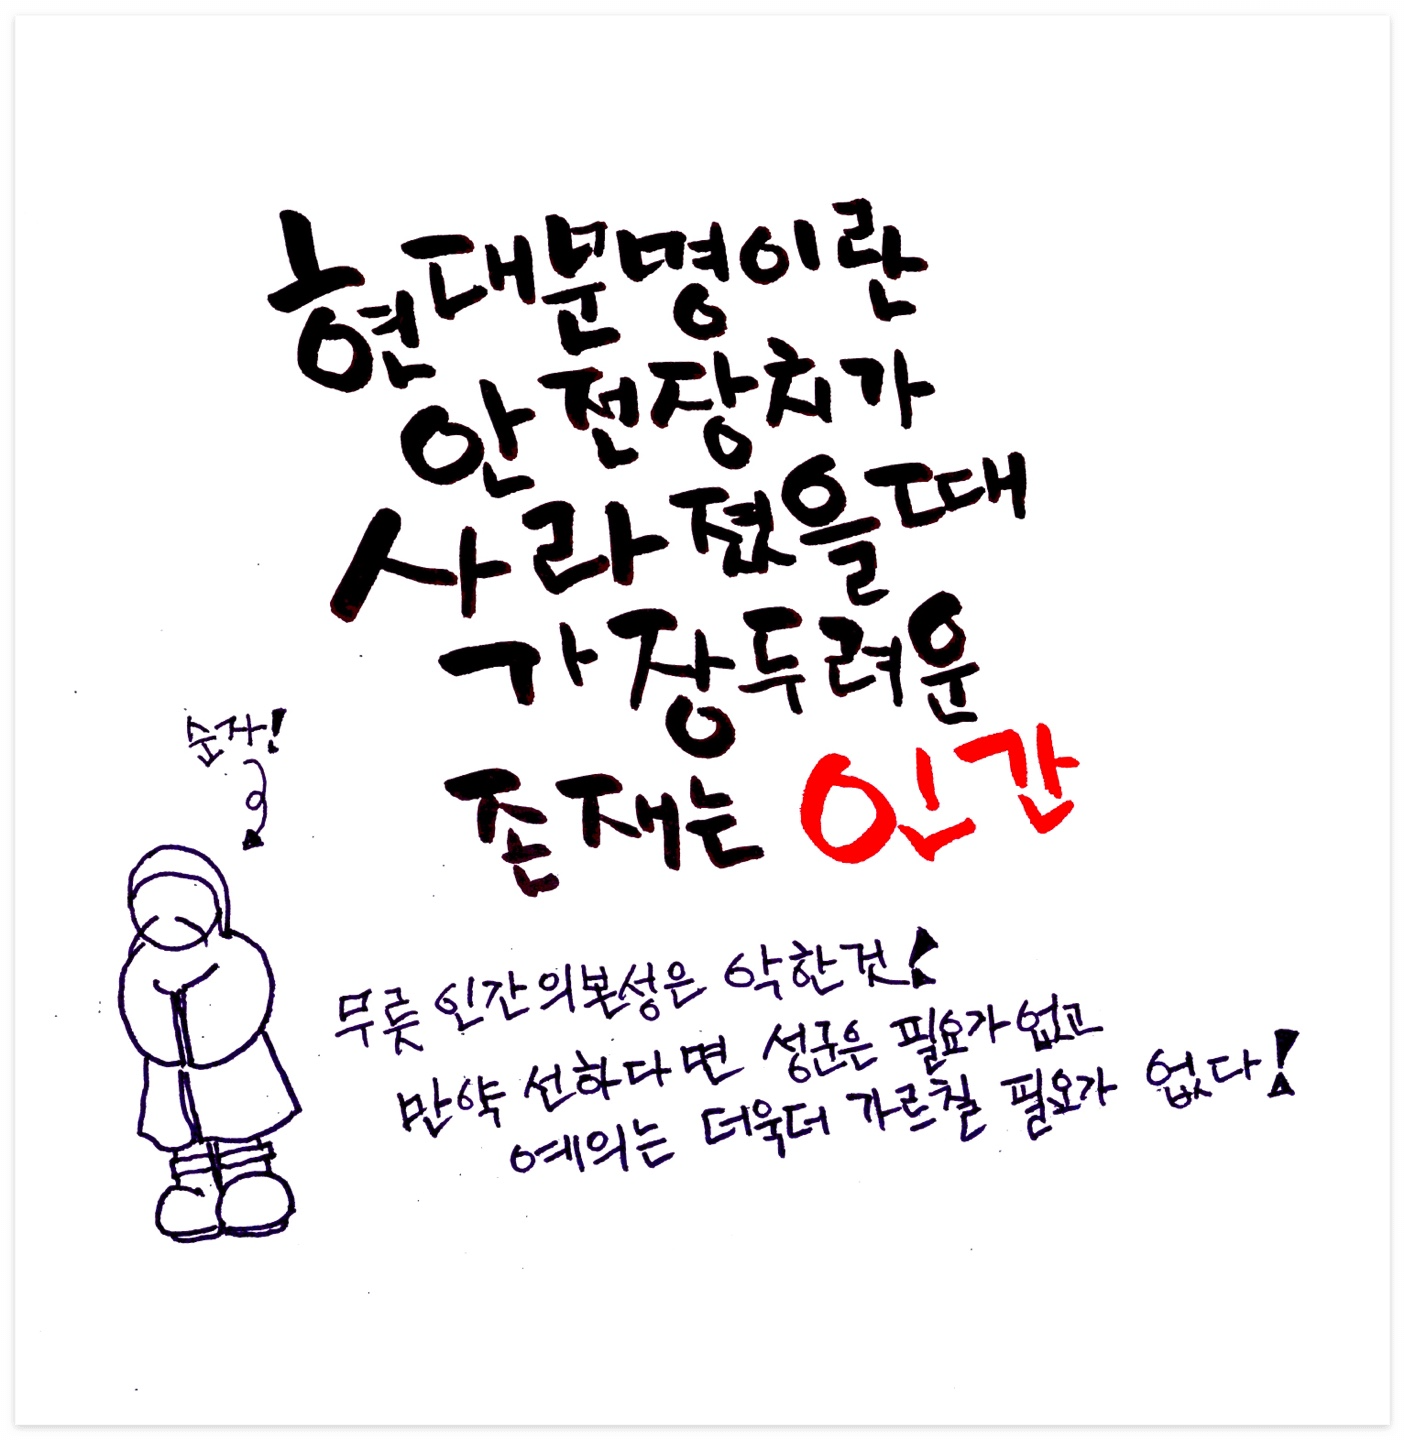 현대문명이란
안전장치가
사라졌을때
가장두려운
존재는 인간
순자!
무릇 인간의본성은 악한것!
만약 선하다면 성군은 필요가없고
예의는 더욱더 가르칠 필요가 없다!